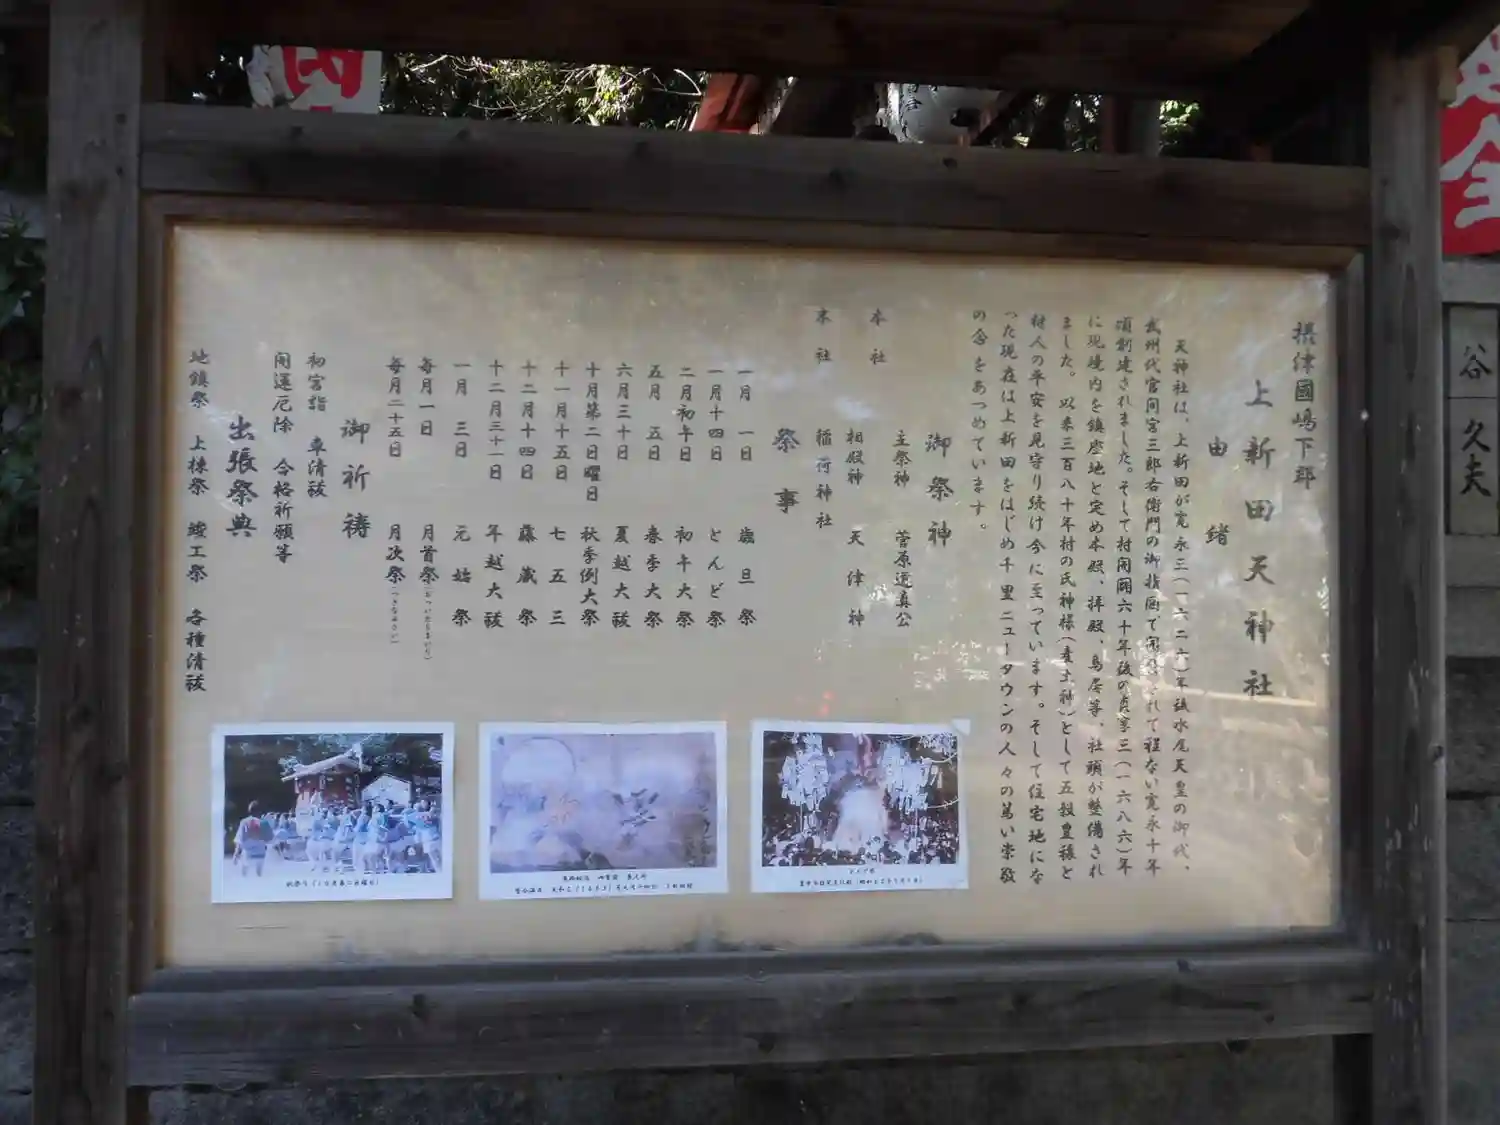 摂津國嶋下郡
上新田天神社
由緒
天神社は、上新田が寛永三(一六二六)年後水尾天皇の御代、
武州代官間宮三郎右衛門の御指図で開
れて程ない寛永十年
頃創建されました。そして村開闢六十年後の貞享三(一六八六)年
に現境内を鎮座地と定め本殿、拝殿、鳥居等、社頭が整備され
ました。以来三百八十年村の氏神様(産土神)として五穀豊穣と
村人の平安を見守り続け今に至っています。そして住宅地にな
った現在は上新田をはじめ千里ニュータウンの人々の篤い崇敬
の念をあつめています。
御祭神
本社 主祭神 菅原道真公
相殿神 天津神
末社 稲荷神社
祭事
一月一日 歳旦祭
一月十四日 とんど祭
二月初午日 初午大祭
五月五日 春季大祭
六月三十日 夏越大祓
十月第二日曜日 秋季例大祭
十一月十五日 七五三
十二月十四日 藤蔵祭
十二月三十一日 年越大祓
一月三日 元始祭
毎月一日 月首祭(おついたちまいり)
毎月二十五日 月次祭(つきなみさい)
御祈祷
初宮詣 車清祓
開運厄除 合格祈願等
出張祭典
地鎮祭 上棟祭 竣工祭 各種清祓
秋祭り(10月第二日曜日)
とんど祭
谷久夫
全